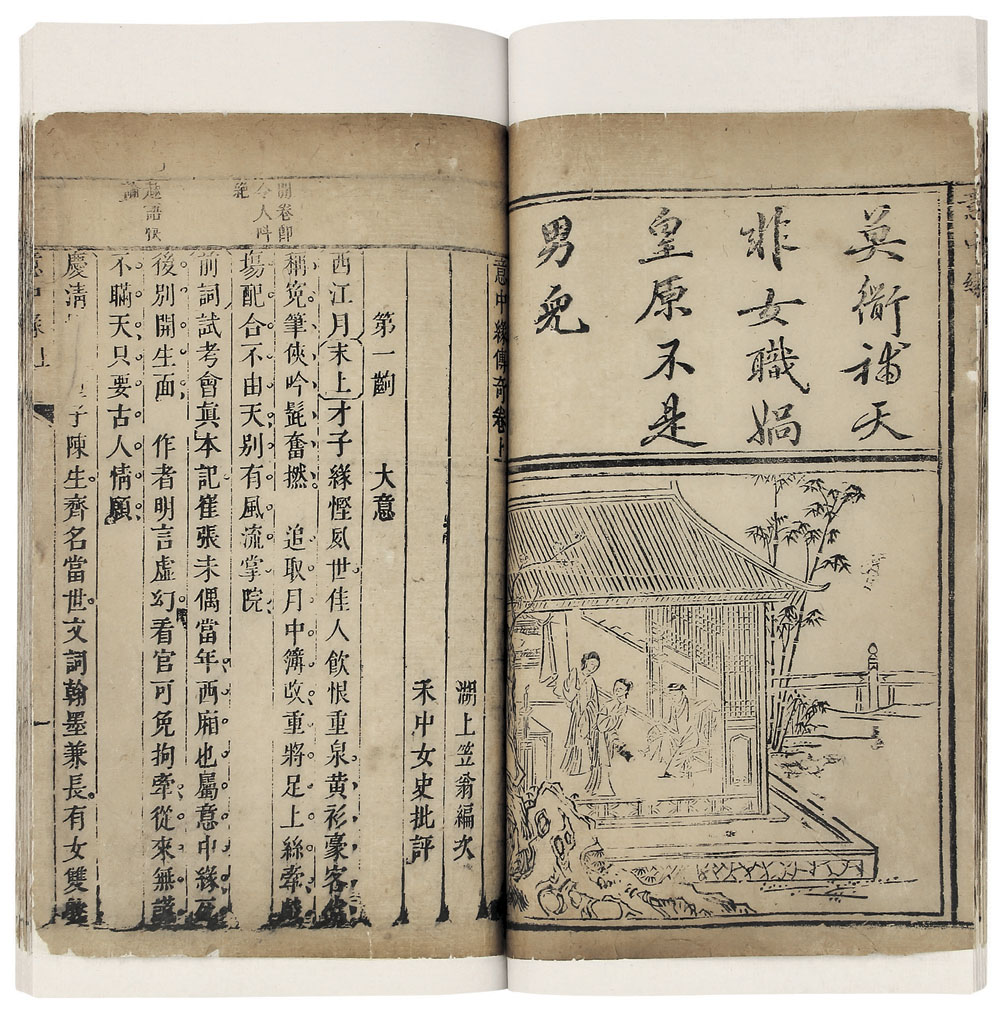 意中緣
莫衜補天
非女職媧
皇原不是
男兒
意中緣傳奇卷上
湖上笠翁編次
禾中女史批評
第一齣 大意
開卷即
令人叫
絕
西江月 末上 才子緣慳夙世佳人飲恨重泉黃衫豪客
稱冤筆俠吟髭奮撚 追取月中簿改重將足上絲牽戲
場配合不由天別有風流掌院
前詞試考會真本記崔張未偶當年西廂也屬意中緣死
趣語快
論
後別開生面 作者明言虛幻看官可免拘牽從來無謊
不瞞天只要古人情願
慶清 子陳生齊名當世文詞翰墨兼長有女雙
意中緣上 一